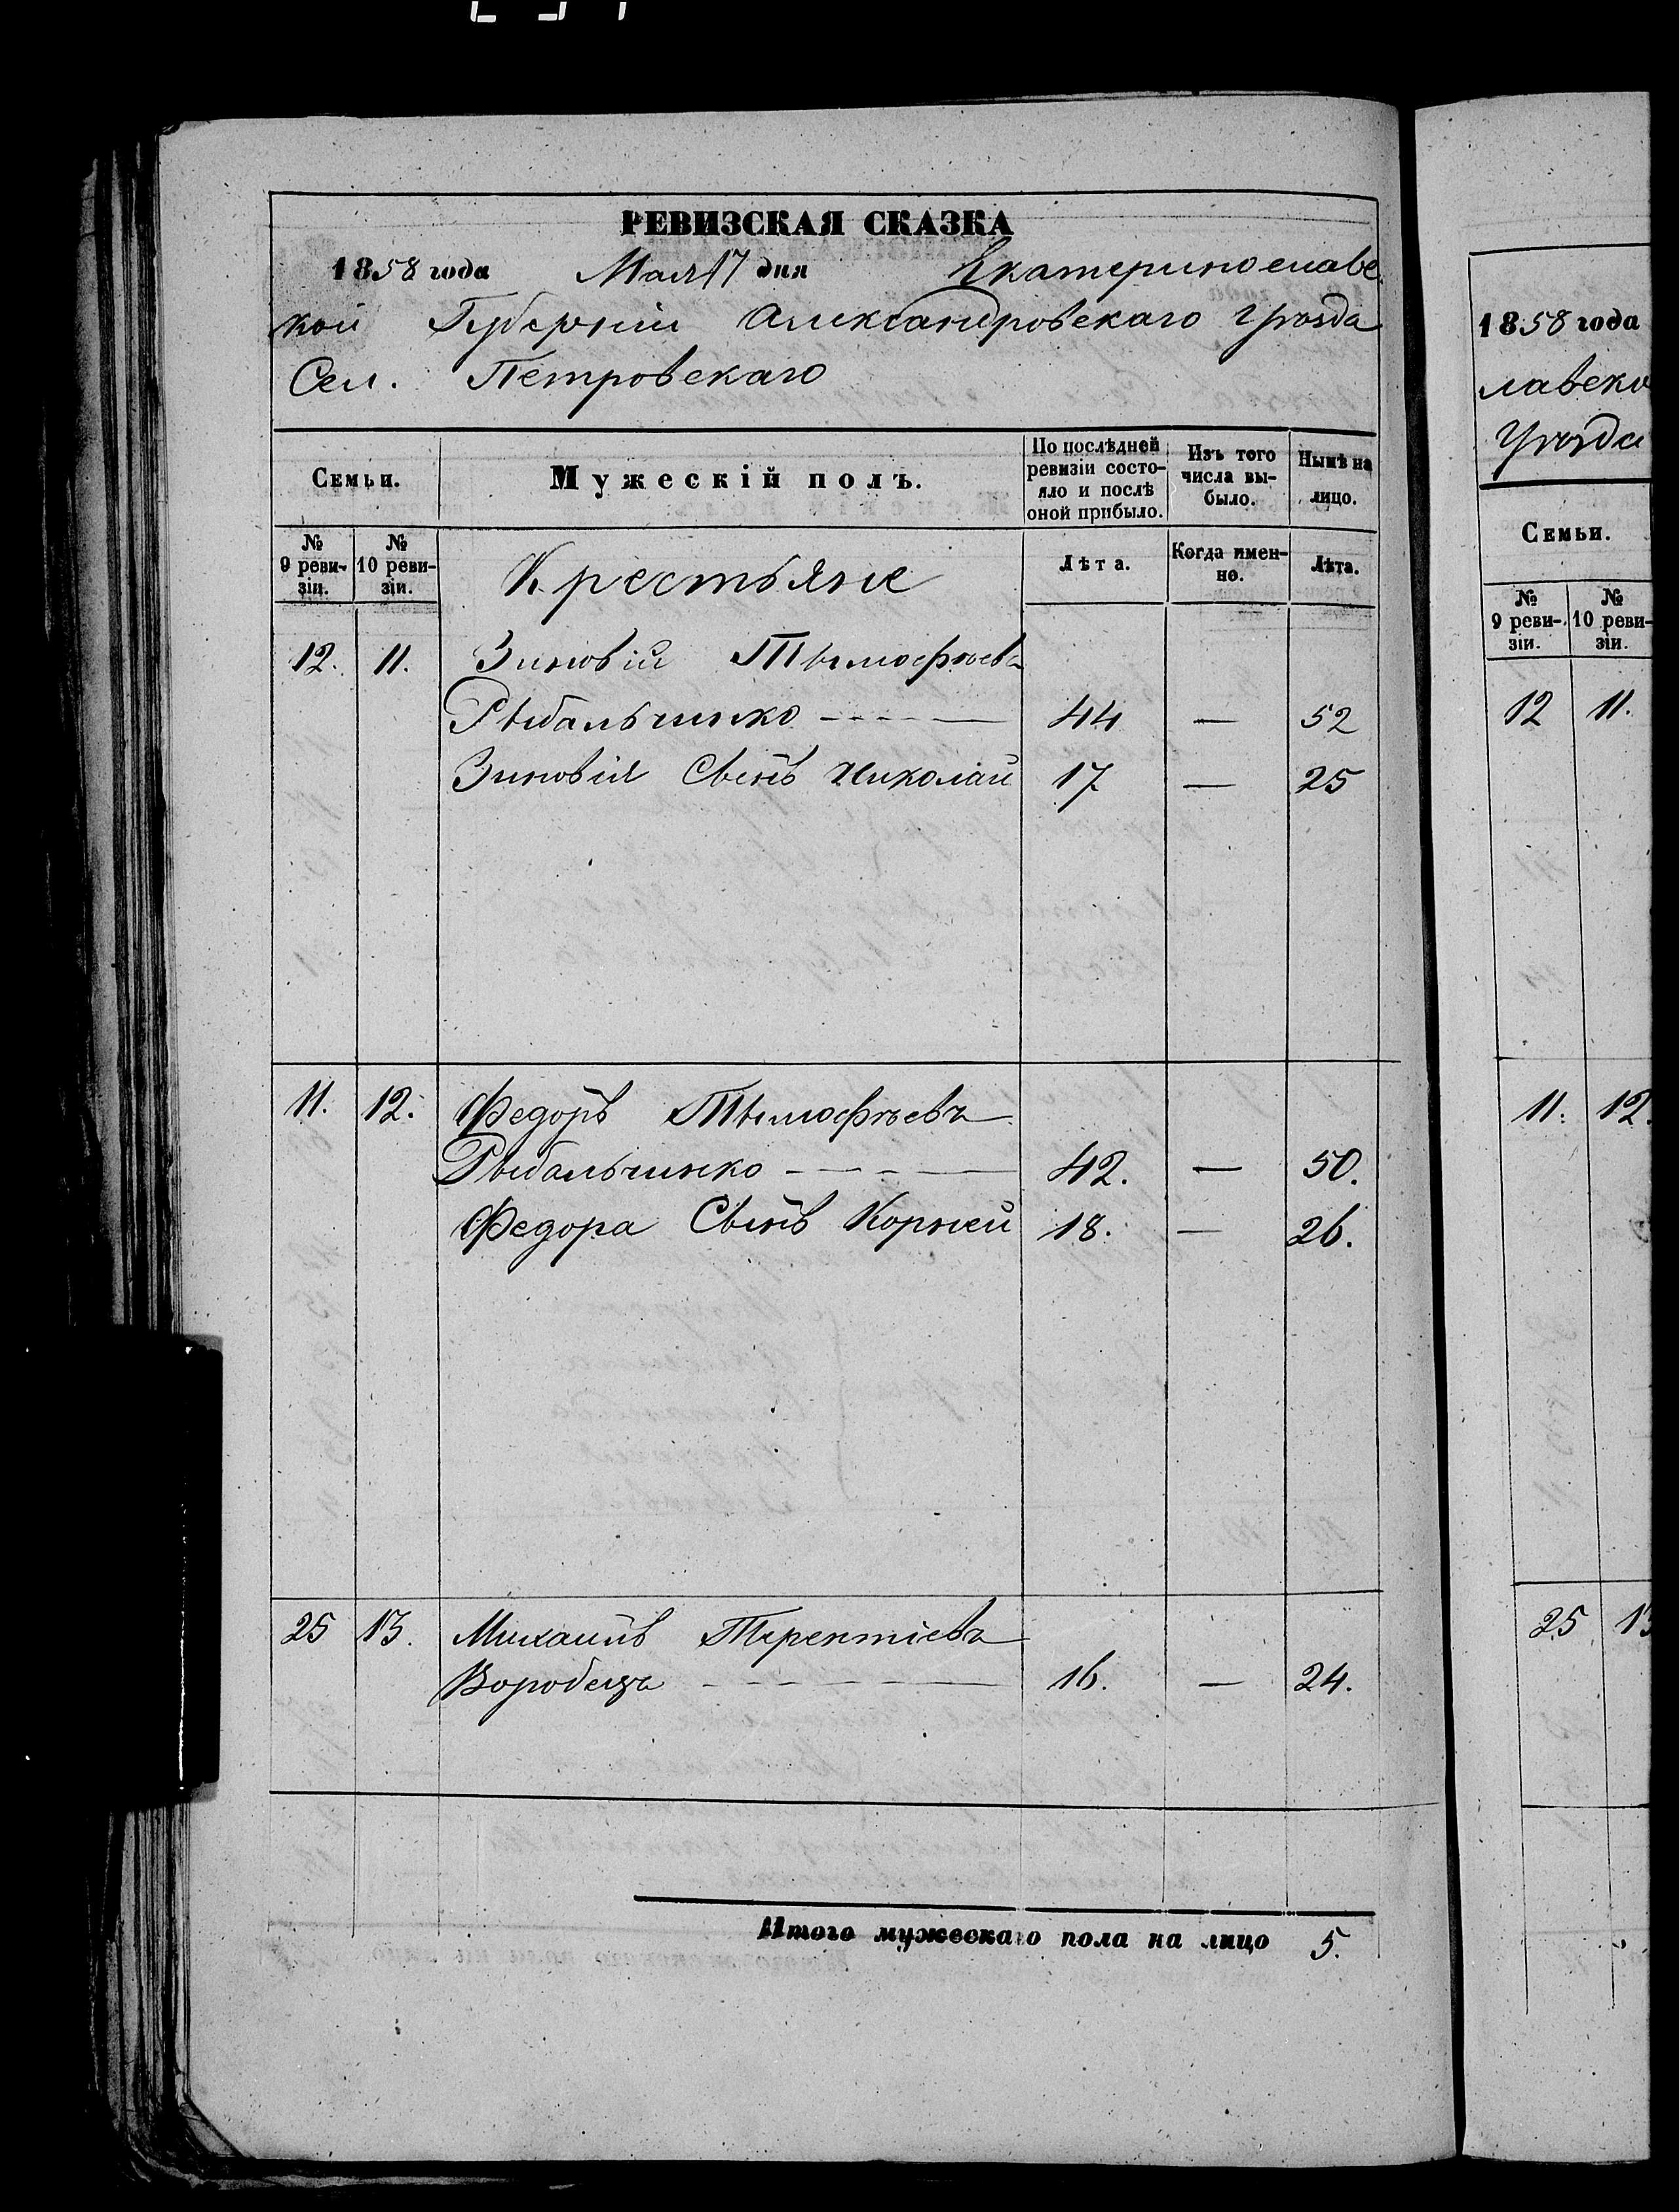 РЕВИЗСКАЯ СКАЗКА
1858 года Мая 17 дня Екатеринославс
кой Губерніи Александровскаго Уѣзда
Сел. Петровскаго
Семьи. Мужескій полъ. По послѣдней ревизіи состояло и послѣ оной прибыло. Изъ того числа выбыло. Нынѣ на лицо.
№ 9 ревизіи. № 10 ревизіи. Крестьяне Лѣта. Когда именно. Лѣта.
12. 11. Зиновій Тымофѣевъ
Рыбальчинко - - - - — 44 — 52
Зиновія Сынъ Николай 17 — 25
11. 12. Федоръ Тымофѣевъ
Рыбальчинко - — - — 42. — 50.
Федора Сынъ Корней 18. — 26.
25 13. Михаилъ Терентіевъ
Воробецъ - - - - — 16. — 24.
Итого мужескаго пола на лицо 5.
1858 года
лавско
Уѣзда
Семьи.
№ 9 ревизіи. № 10 ревизіи.
12 11.
11. 12.
25 13